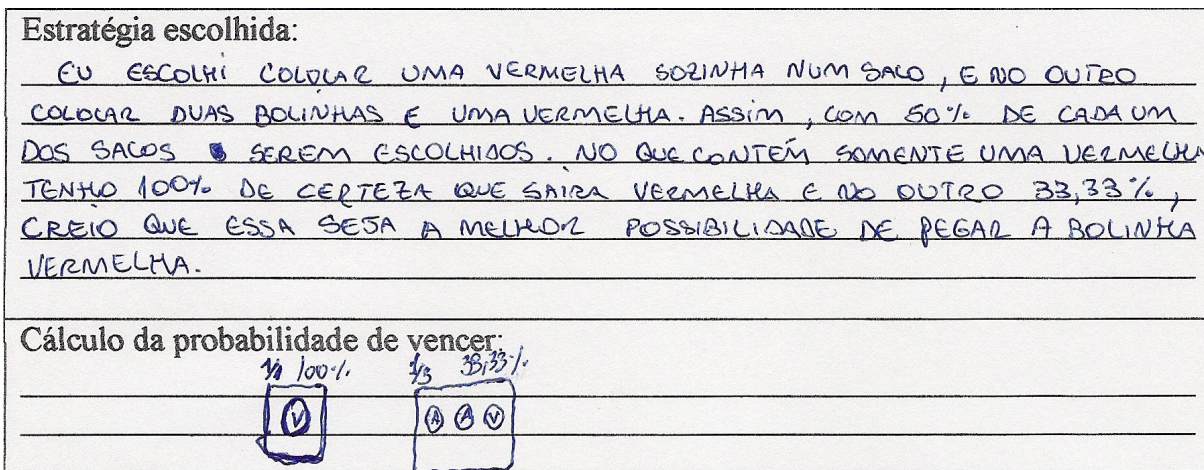 Estratégia escolhida:
EU ESCOLHI COLOCAR UMA VERMELHA SOZINHA NUM SACO, E NO OUTRO
COLOCAR DUAS BOLINHAS E UMA VERMELHA. ASSIM, COM 50% DE CADA UM
DOS SACOS SEREM ESCOLHIDOS. NO QUE CONTÉM SOMENTE UMA VERMELHA
TENHO 100% DE CERTEZA QUE SAIRA VERMELHA E NO OUTRO 33,33%,
CREIO QUE ESSA SEJA A MELHOR POSSIBILIDADE DE PEGAR A BOLINHA
VERMELHA.
Cálculo da probabilidade de vencer:
1/1 100% 1/3 33,33%
V A A V